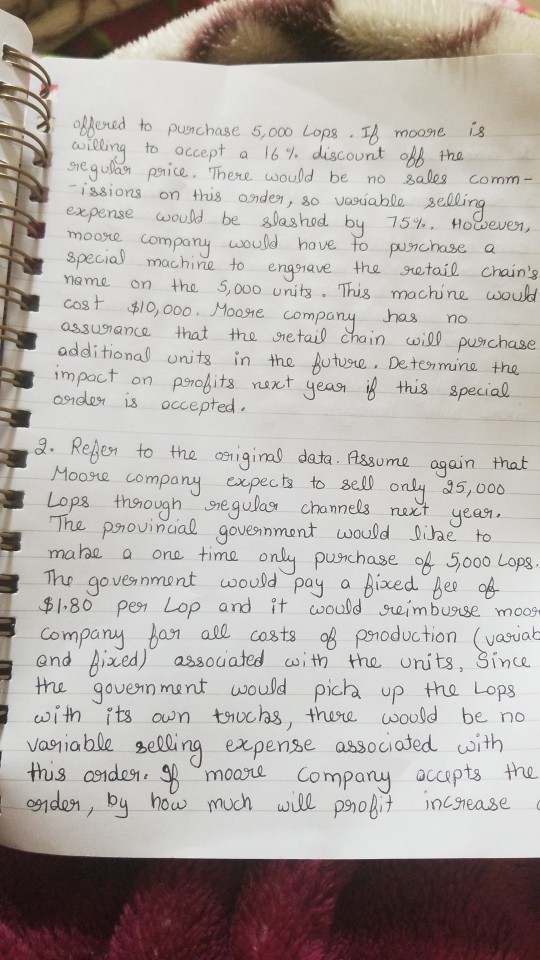 offered to purchase 5,000 Lops. If moore is
willing to accept a 16% discount off the
regular price. There would be no sales comm-
-issions on this order, so variable selling
expense would be slashed by 75%. However,
moore company would have to purchase a
special machine to engrave the retail chain's
name on the 5,000 units. This machine would
cost $10,000. Moore company has no
assurance that the retail chain will purchase
additional units in the future. Determine the
impact on profits next year if this special
order is accepted.
2. Refer to the original data. Assume again that
Moore company expects to sell only 25,000
Lops through regular channels next year.
The provincial government would like to
make a one time only purchase of 5,000 Lops.
The government would pay a fixed fee of
$1.80 per Lop and it would reimburse moor
company for all costs of production (variab
and fixed) associated with the units, Since
the government would pick up the Lops
with its own trucks, there would be no
variable selling expense associated with
this order. If moore company accepts the
order, by how much will profit increase